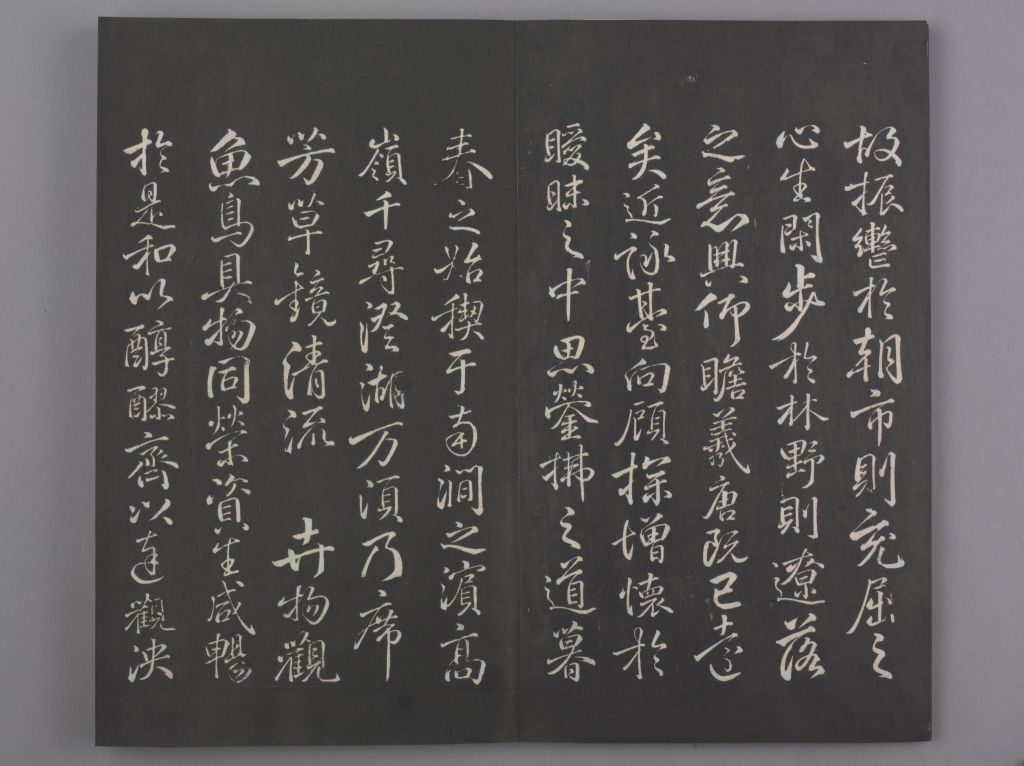 故振轡於朝市則充屈之
心生閑步於林野則遼落
之意興仰瞻羲唐既已遠
矣近詠臺向顧探增懷於
曖昧之中思鎣拂之道暮
春之始稧于南澗之濱高
嶺千尋澄湖万頃乃席
芳草鏡清流 卉物觀
魚鳥具物同榮資生咸暢
於是和以醇醪齊以達觀泱